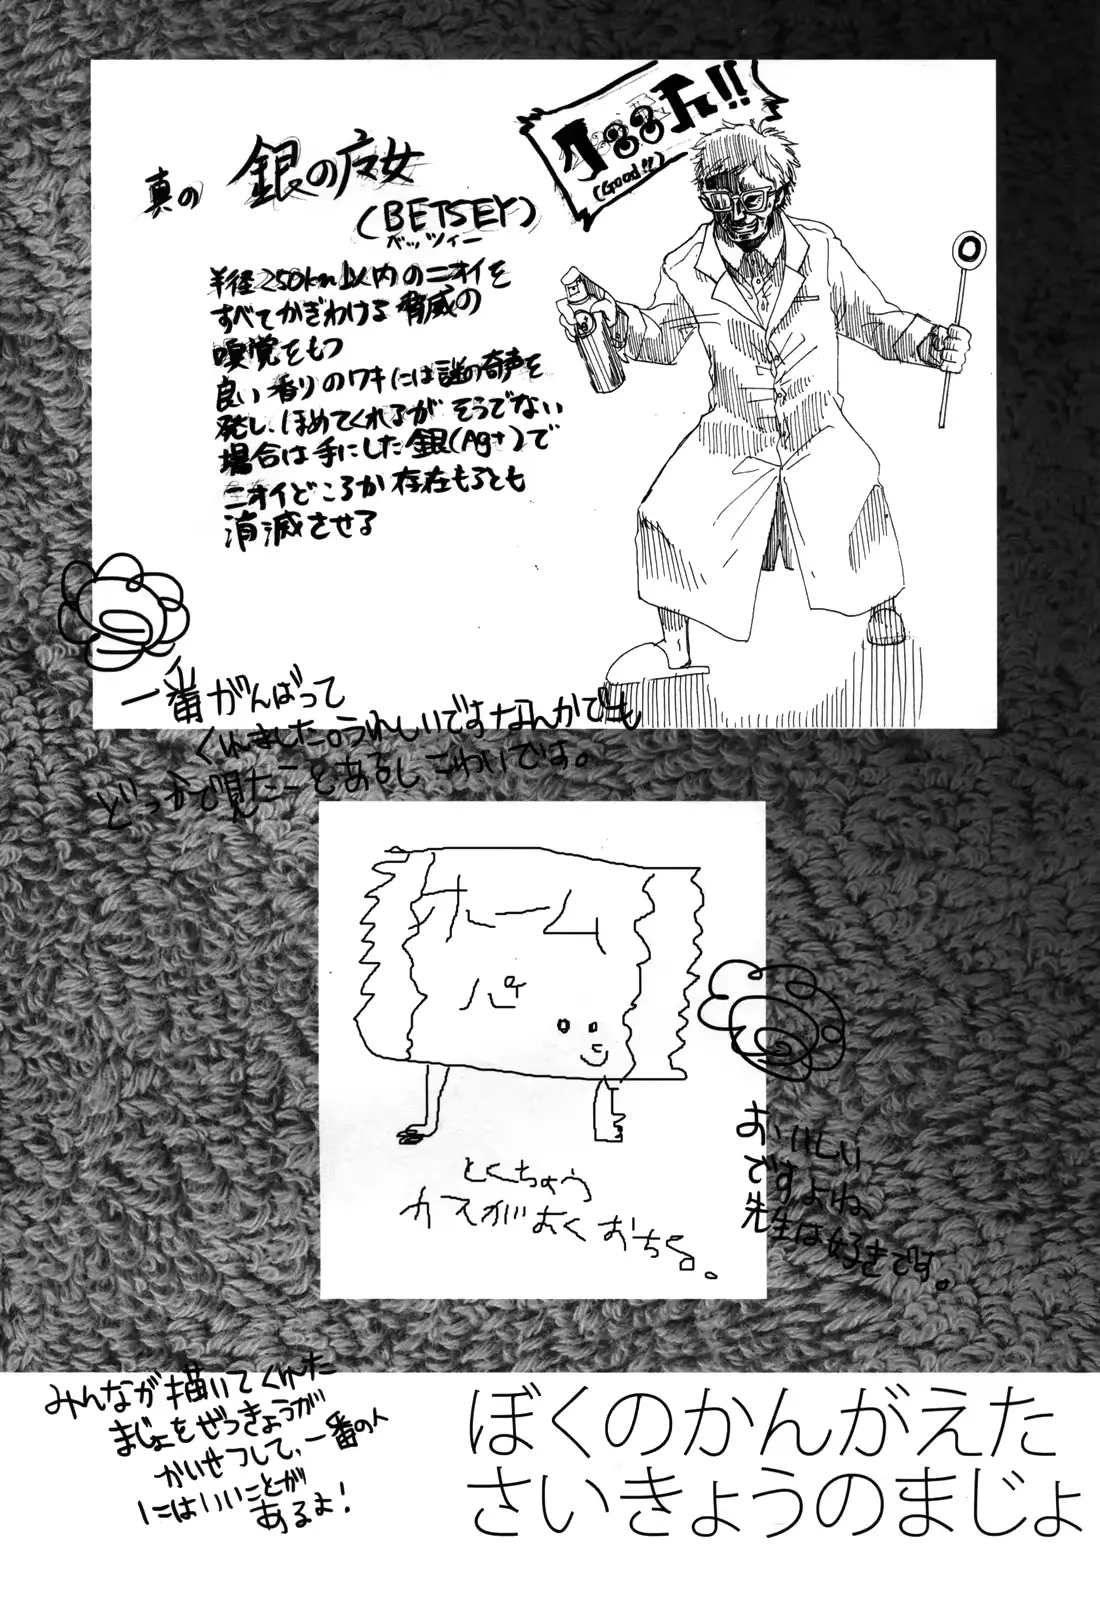 グッド!!
(Good!!)
真の 銀の魔女
(BETSEY)
ベッツィー
半径250km以内のニオイを
すべてかぎわける脅威の
嗅覚をもつ
良い香りのワキには謎の奇声を
発し、ほめてくれるが そうでない
場合は手にした銀(Ag+)で
ニオイどころか存在もろとも
消滅させる
Ag+
一番がんばって
くれました。うれしいですなんかでも
どっかで見たことあるしこわいです。
ホーム
パイ
とくちょう
カスがおくおちる。
おいしい
ですよね
先生は好きです。
みんなが描いてくれた
まじょをぜっきょうが
かいせつして、一番の人
にはいいことが
あるよ!
ぼくのかんがえた
さいきょうのまじょ